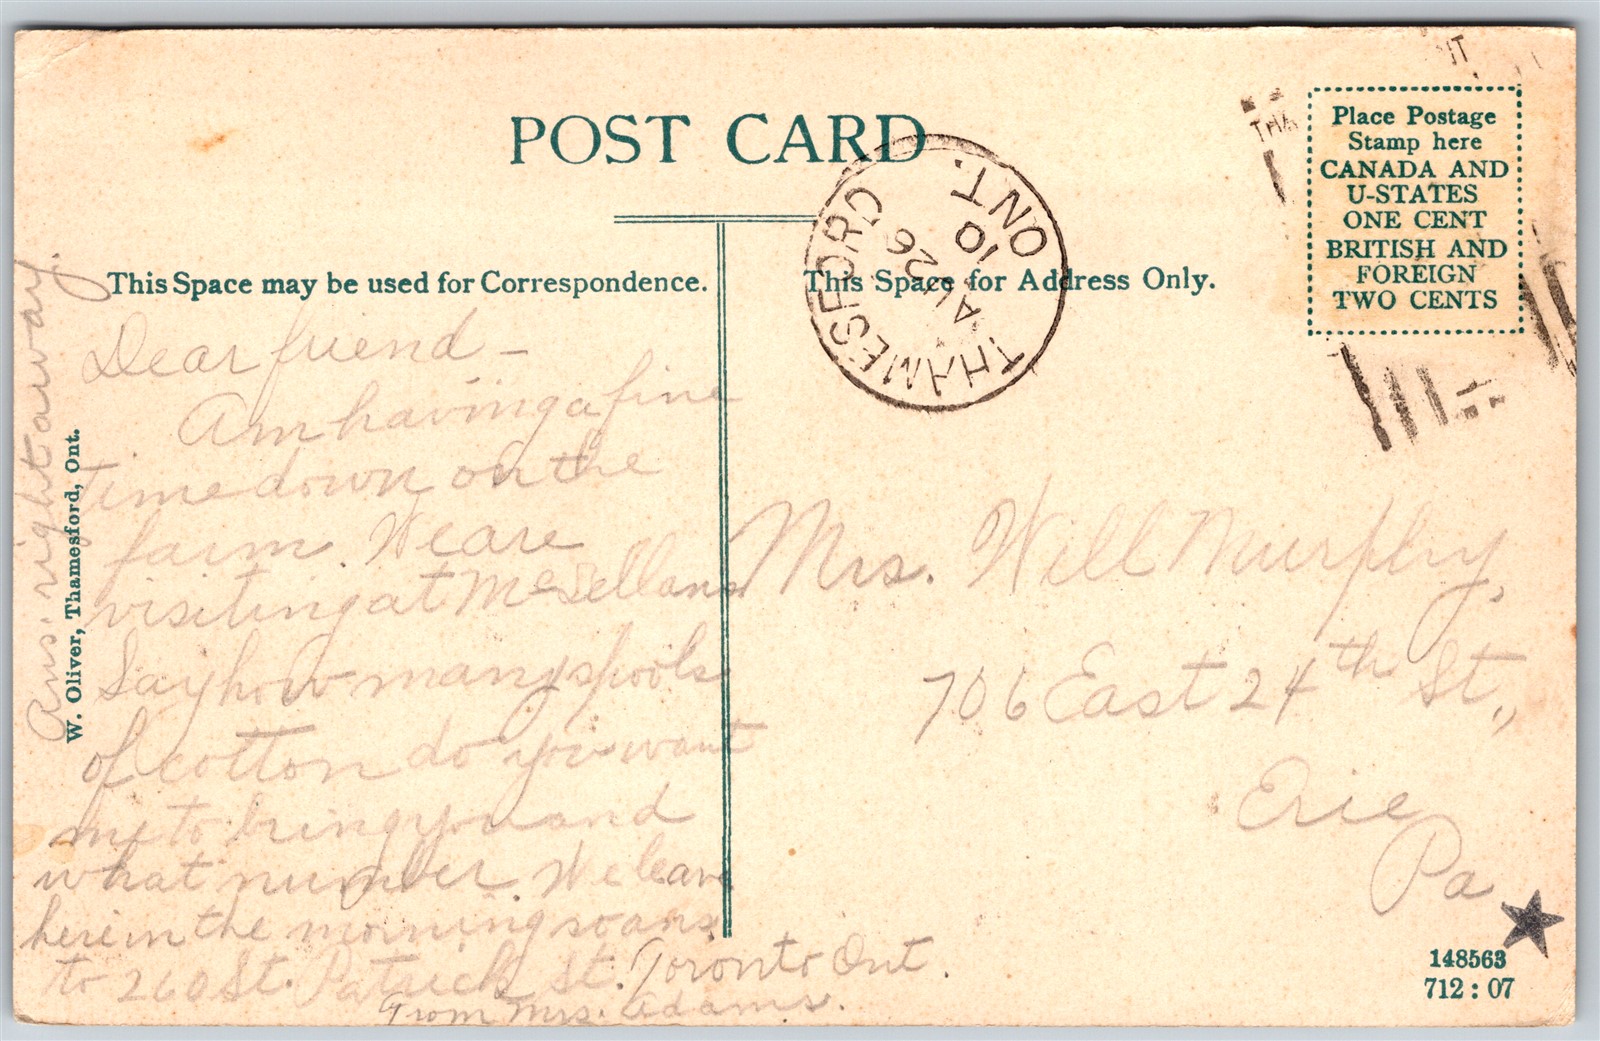 POST CARD
This Space may be used for Correspondence.
This Space for Address Only.
Place Postage
Stamp here
CANADA AND
U-STATES
ONE CENT
BRITISH AND
FOREIGN
TWO CENTS
THAMESFORD ONT.
AU 26
10
THA
W. Oliver, Thamesford, Ont.
Ans. right away.
Dear friend -
Am having a fine
time down on the
farm. We are
visiting at
Say how many spools
of cotton do you want
me to bring you and
what number. We leave
here in the morning so ans
to 260 St. Patrick St. Toronto Ont.
From Mrs. Adams.
Mrs. Will Murphy,
706 East 24th St.,
Erie
Pa
148563
712 : 07